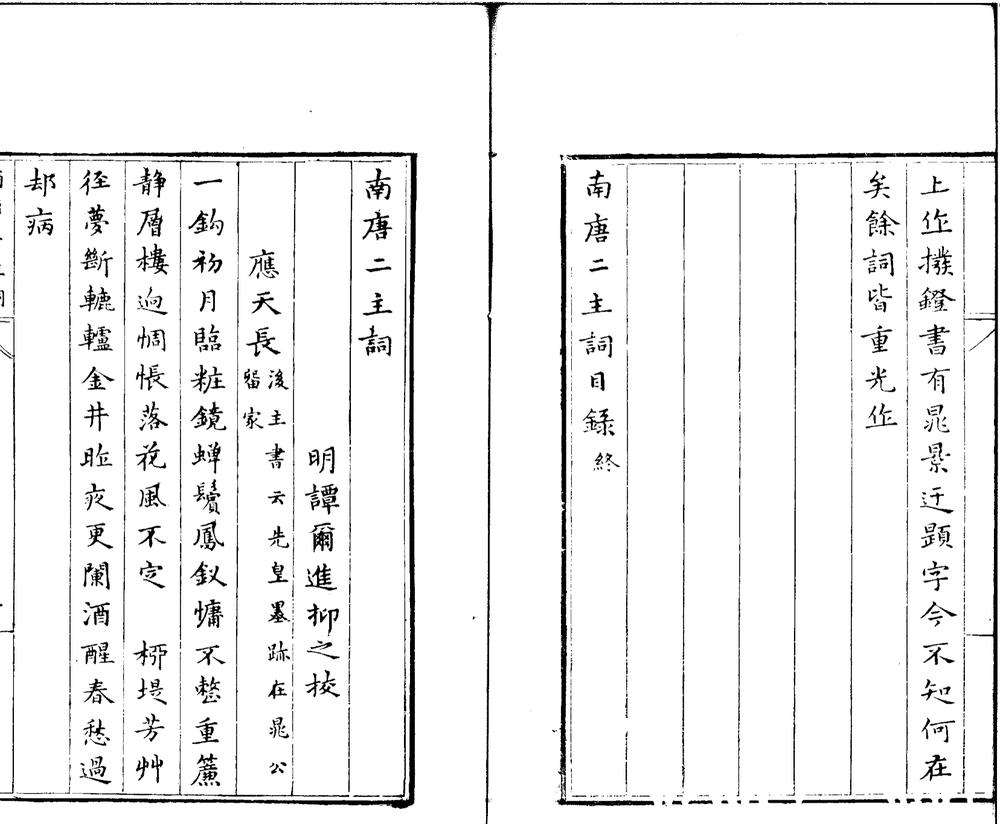 上作撥鐙書有晁景迂題字今不知何在
矣餘詞皆重光作
南唐二主詞目錄終
南唐二主詞
明譚爾進抑之校
應天長後主書云先皇墨跡在晁公
留家
一鈎初月臨粧鏡蟬鬢鳳釵慵不整重簾
静層樓逈惆悵落花風不定　栁堤芳艸
徑夢斷轆轤金井昨夜更闌酒醒春愁過
却病